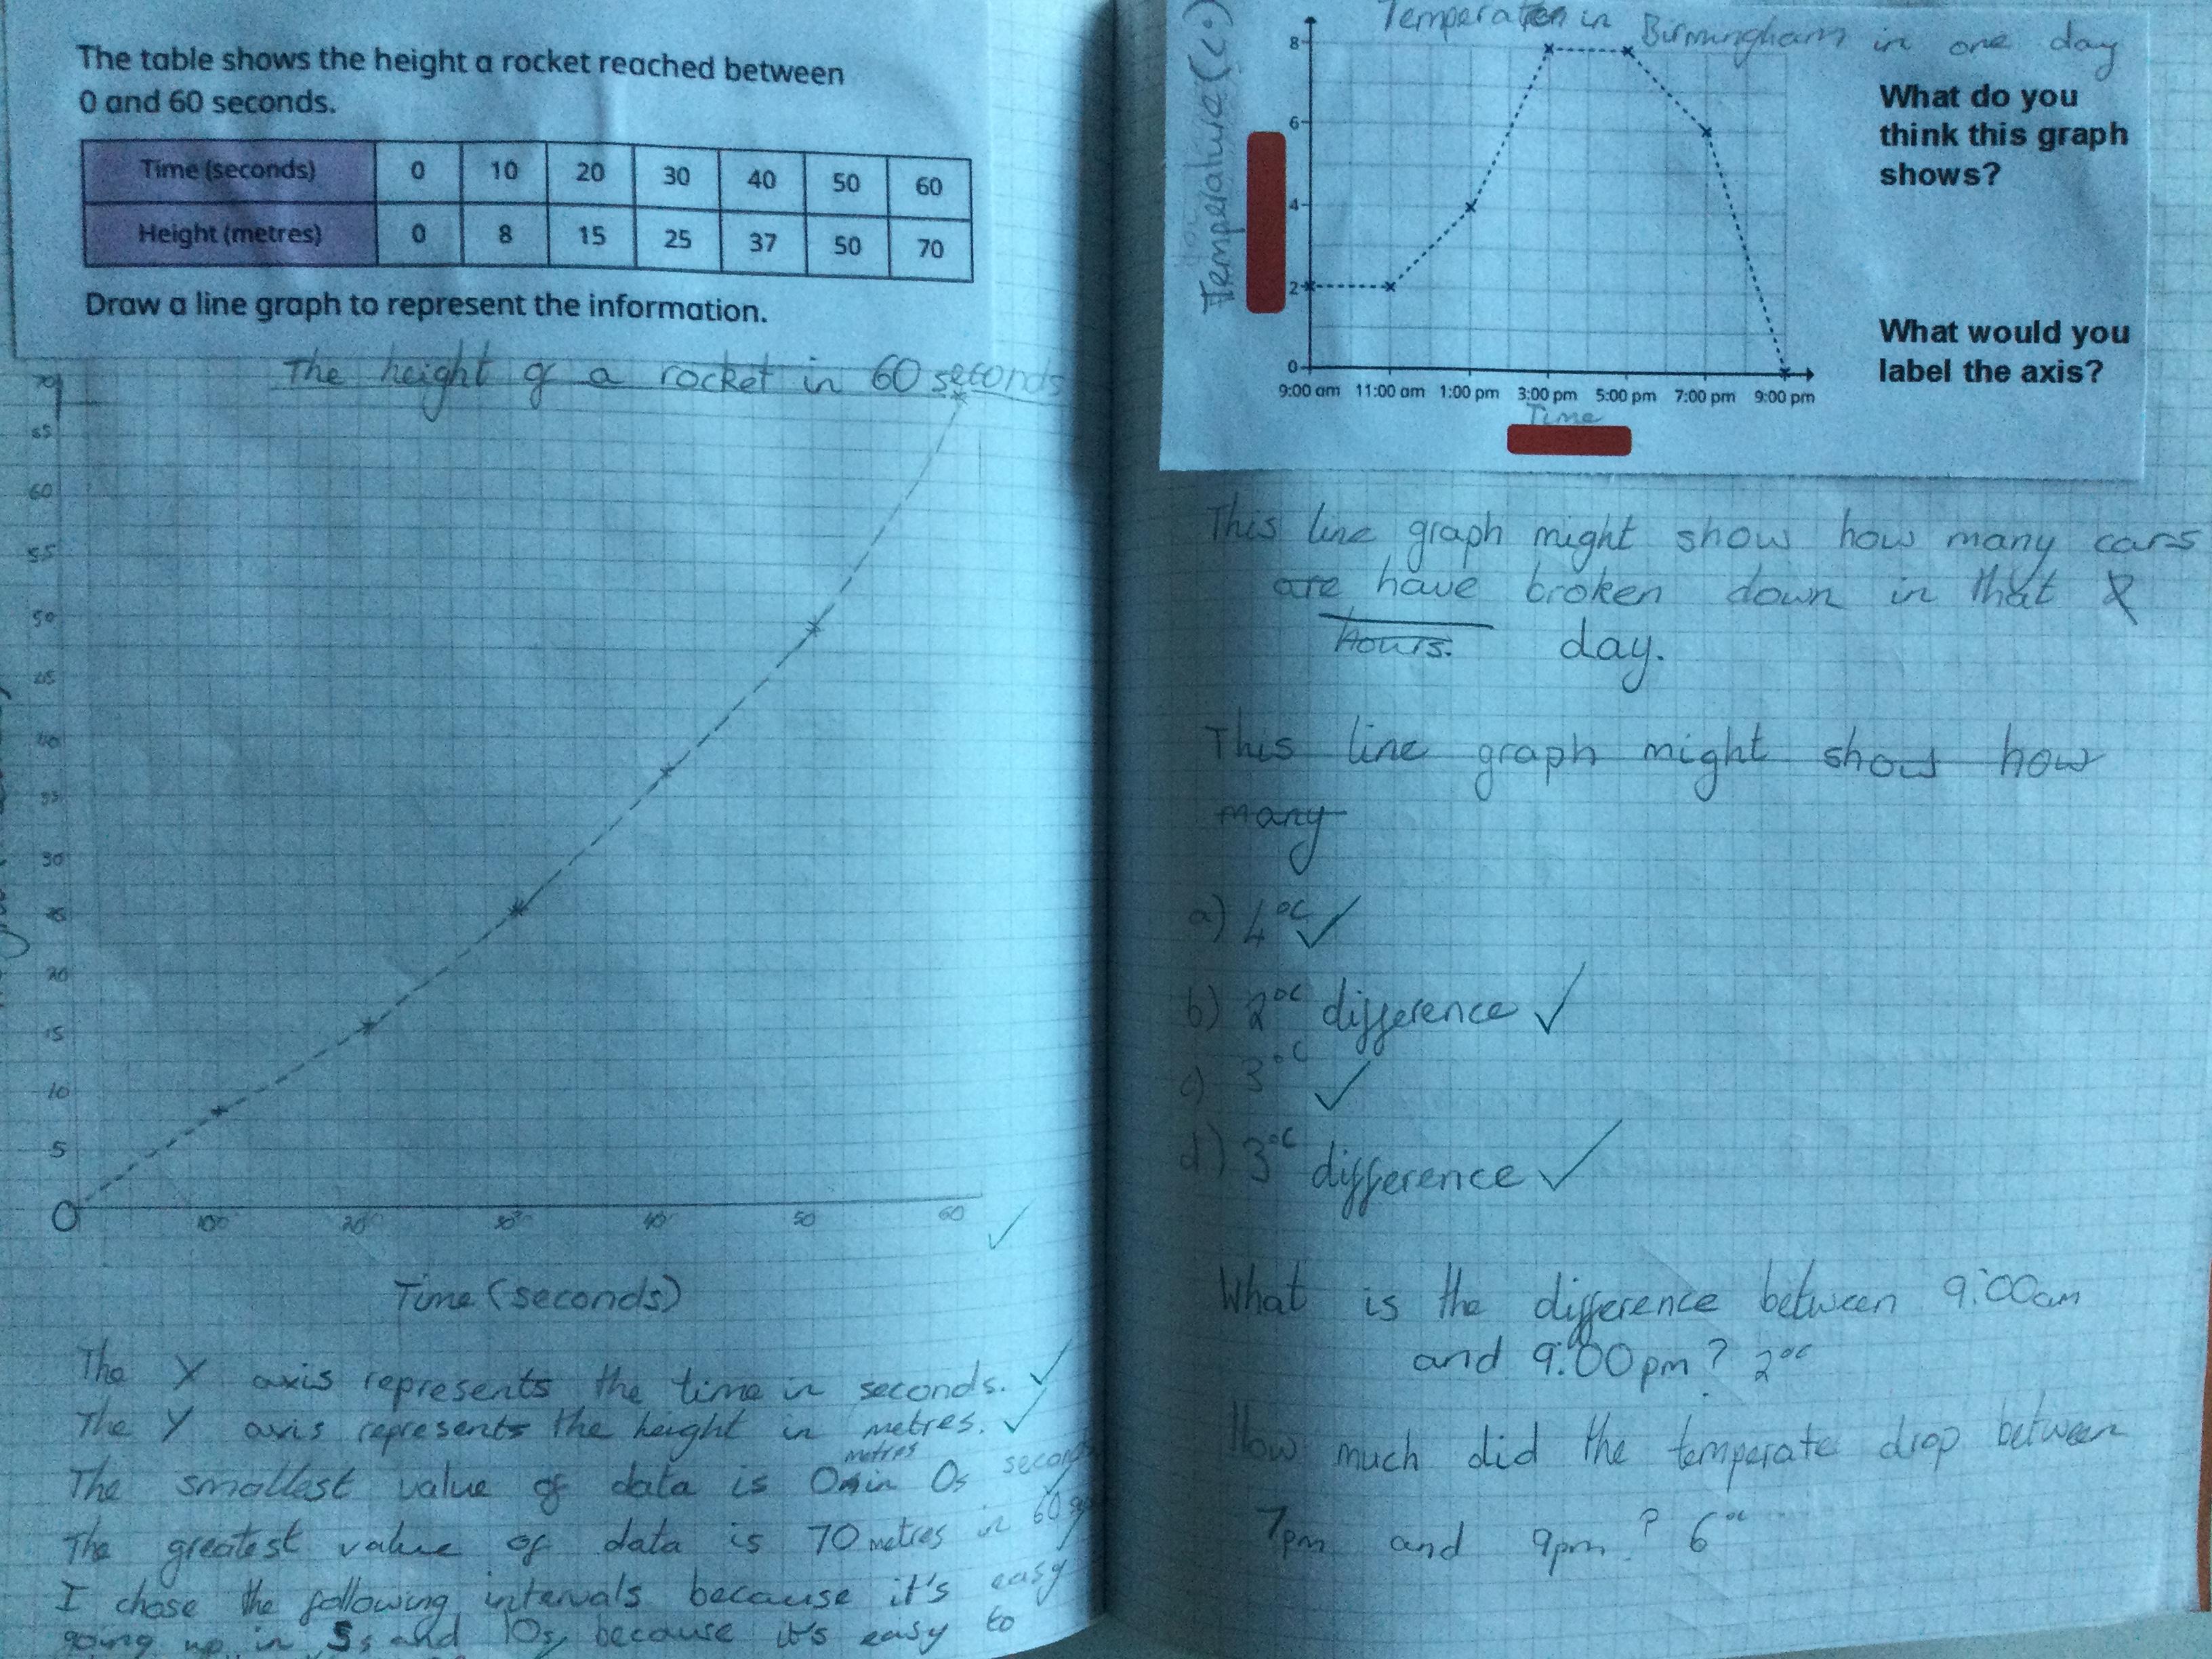 The table shows the height a rocket reached between
0 and 60 seconds.
Time (seconds) 0 10 20 30 40 50 60
Height (metres) 0 8 15 25 37 50 70
Draw a line graph to represent the information.
The height of a rocket in 60 seconds
70
65
60
55
50
45
40
35
30
25
20
15
10
5
0
10 20 30 40 50 60
Time (seconds)
The X axis represents the time in seconds.
The Y axis represents the height in metres.
metres
The smallest value of data is 0 in 0s seconds
The greatest value of data is 70 metres in 60
I chose the following intervals because it's easy
going up in 5s and 10s, because it's easy to
Temperature in Birmingham in one day
Temperature (c°)
8
6
4
2
0
9:00 am 11:00 am 1:00 pm 3:00 pm 5:00 pm 7:00 pm 9:00 pm
Time
What do you
think this graph
shows?
What would you
label the axis?
This line graph might show how many cars
are have broken down in that
hours. day.
This line graph might show how
many
a) 4°C
b) 2°C difference
c) 3°C
d) 3°C difference
What is the difference between 9:00am
and 9:00pm? 2°C
How much did the temperate drop between
7pm and 9pm? 6°C